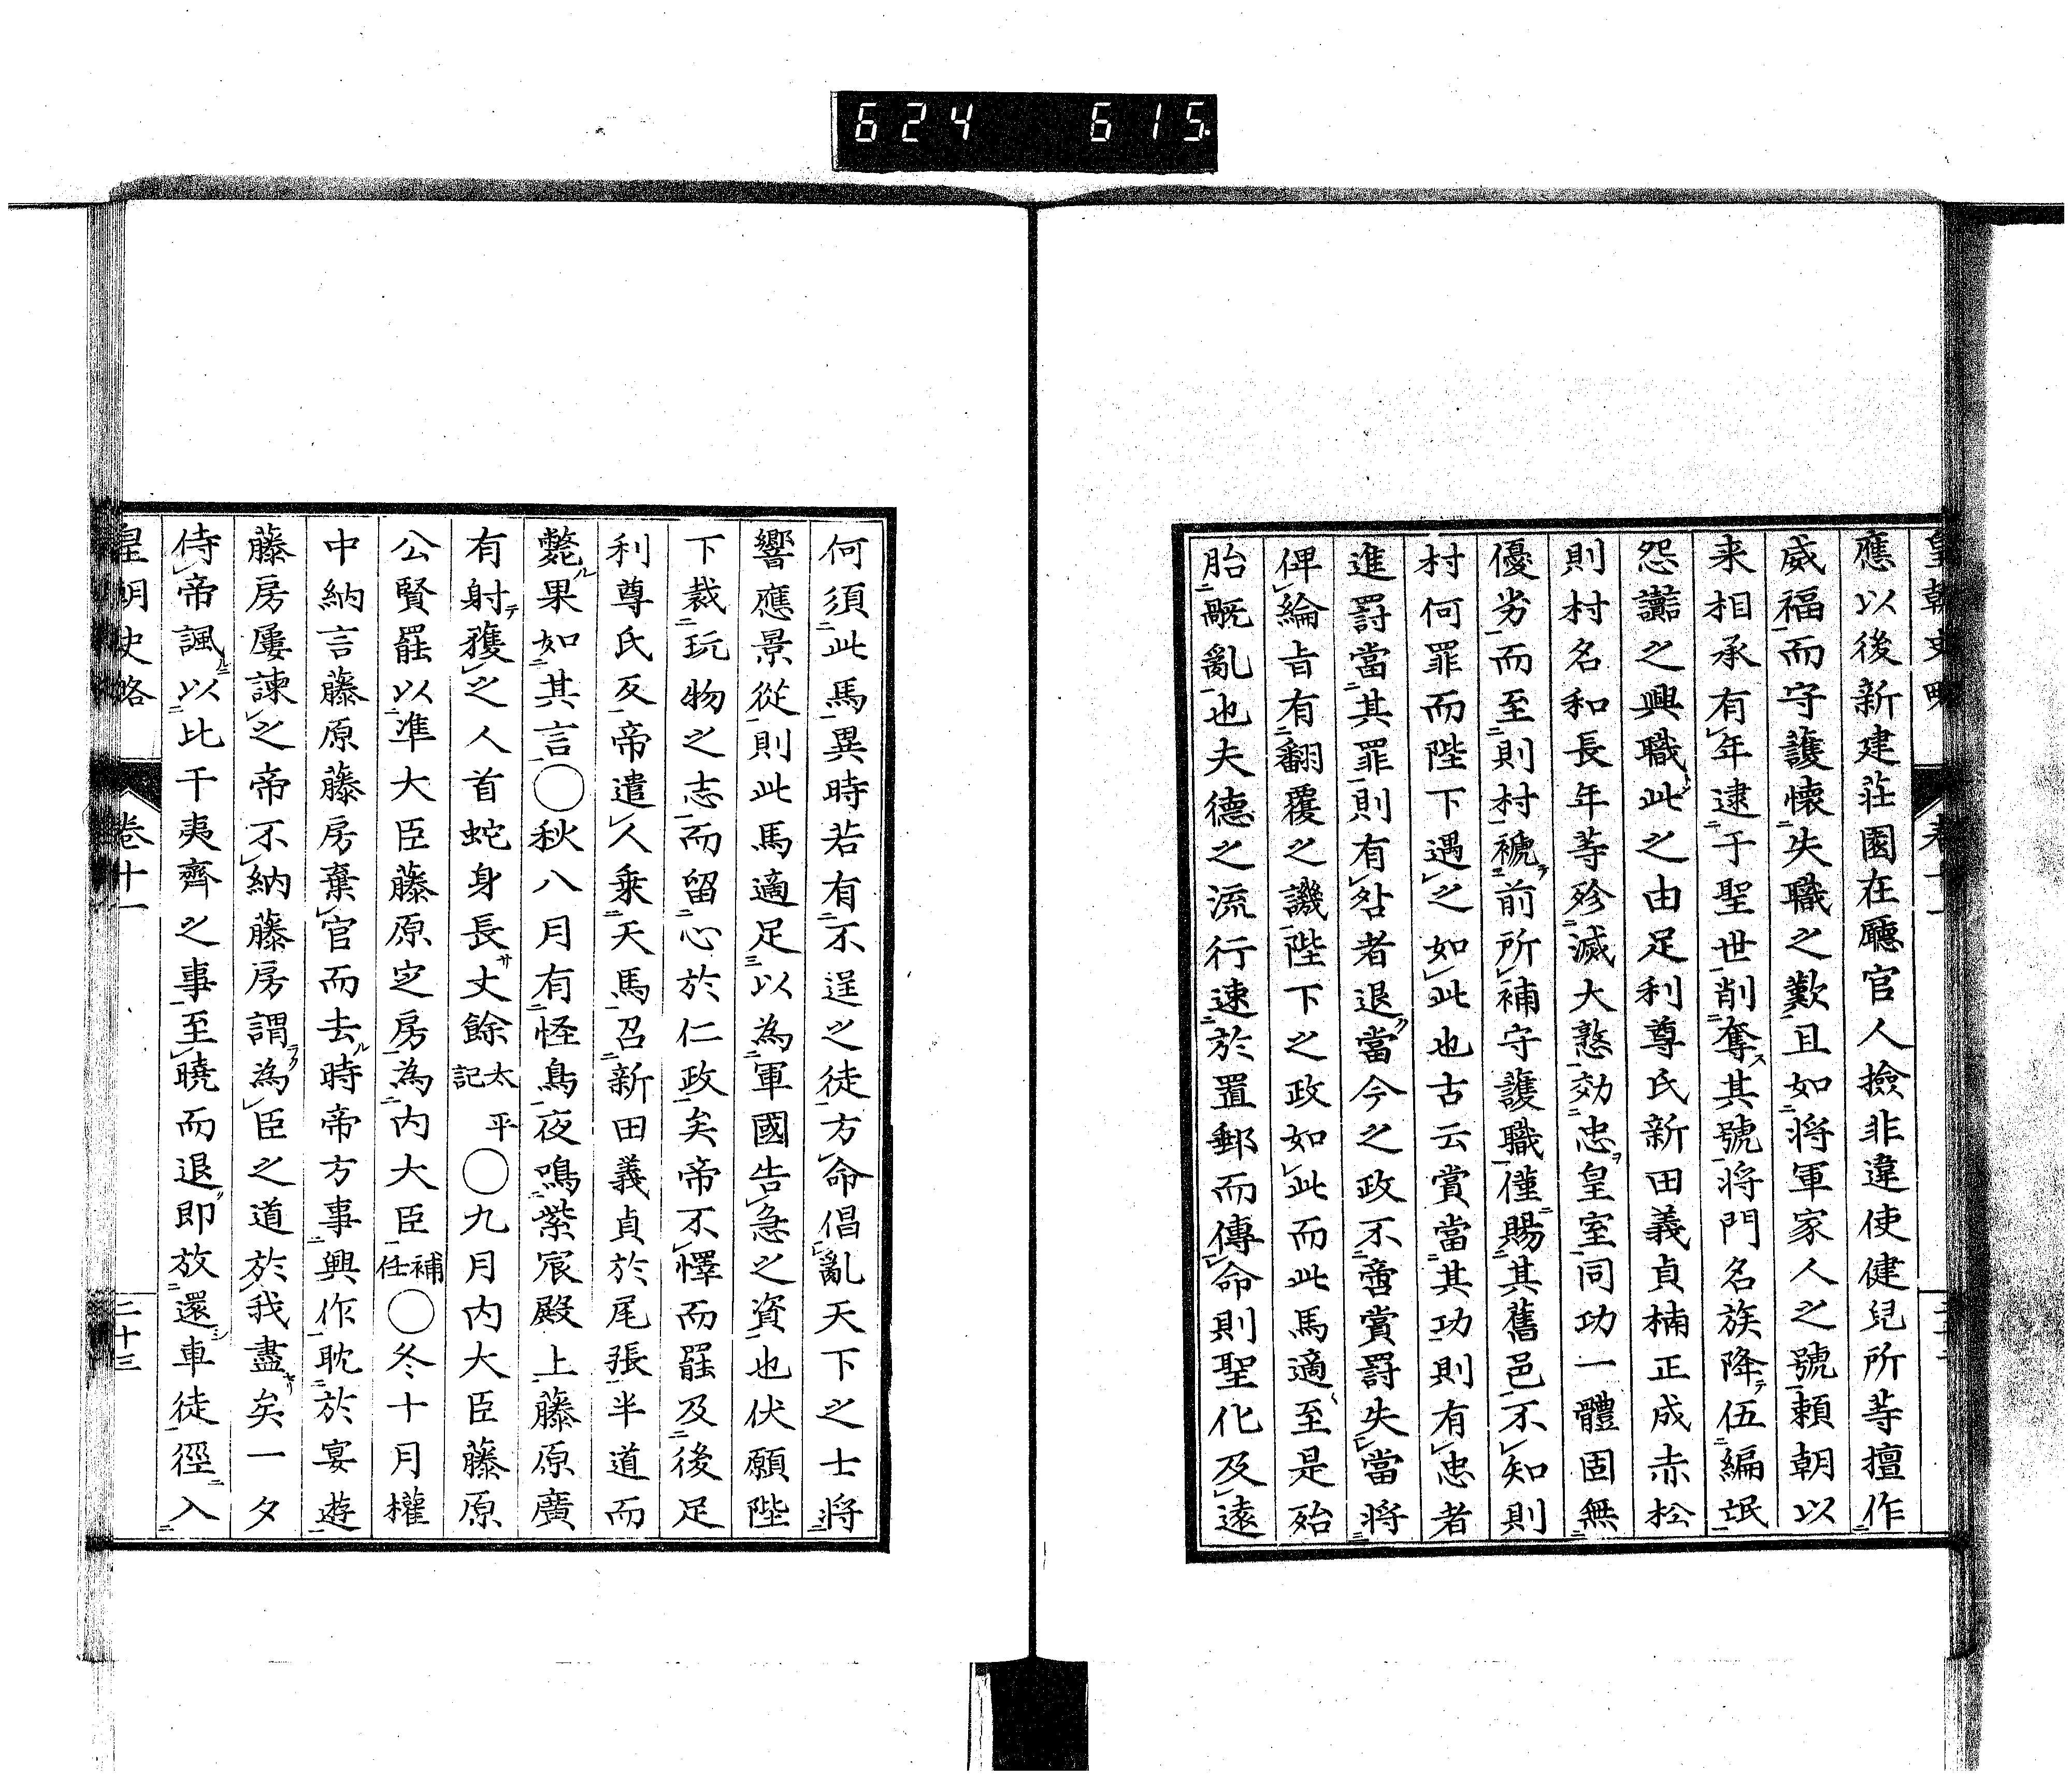 624 615
皇朝史略
應以後新建莊園在廳官人撿非違使健兒所等擅作
威福而守護懷失職之歎且如將軍家人之號賴朝以
来相承有年逮于聖世削奪其號將門名族降伍編氓
怨讟之興職此之由足利尊氏新田義貞楠正成赤松
則村名和長年等殄滅大憝効忠皇室同功一體固無
優劣而至則村褫前所補守護職僅賜其舊邑不知則
村何罪而陛下遇之如此也古云賞當其功則有忠者
進罰當其罪則有咎者退當今之政不啻賞罰失當將
俾綸旨有翻覆之譏陛下之政如此而此馬適至是殆
胎厩亂也夫德之流行速於置郵而傳命則聖化及遠
何須此馬異時若有不逞之徒方命倡亂天下之士將
響應景從則此馬適足以為軍國告急之資也伏願陛
下裁玩物之志而留心於仁政矣帝不懌而罷及後足
利尊氏反帝遣人乘天馬召新田義貞於尾張半道而
斃果如其言○秋八月有怪鳥夜鳴紫宸殿上藤原廣
有射獲之人首蛇身長丈餘太平記○九月内大臣藤原
公賢罷以準大臣藤原定房為内大臣補任○冬十月權
中納言藤原藤房棄官而去時帝方事興作耽於宴遊
藤房屢諫之帝不納藤房謂為臣之道於我盡矣一夕
侍帝諷以比干夷齊之事至曉而退即放還車徒徑入
皇朝史略 卷十一 二十三